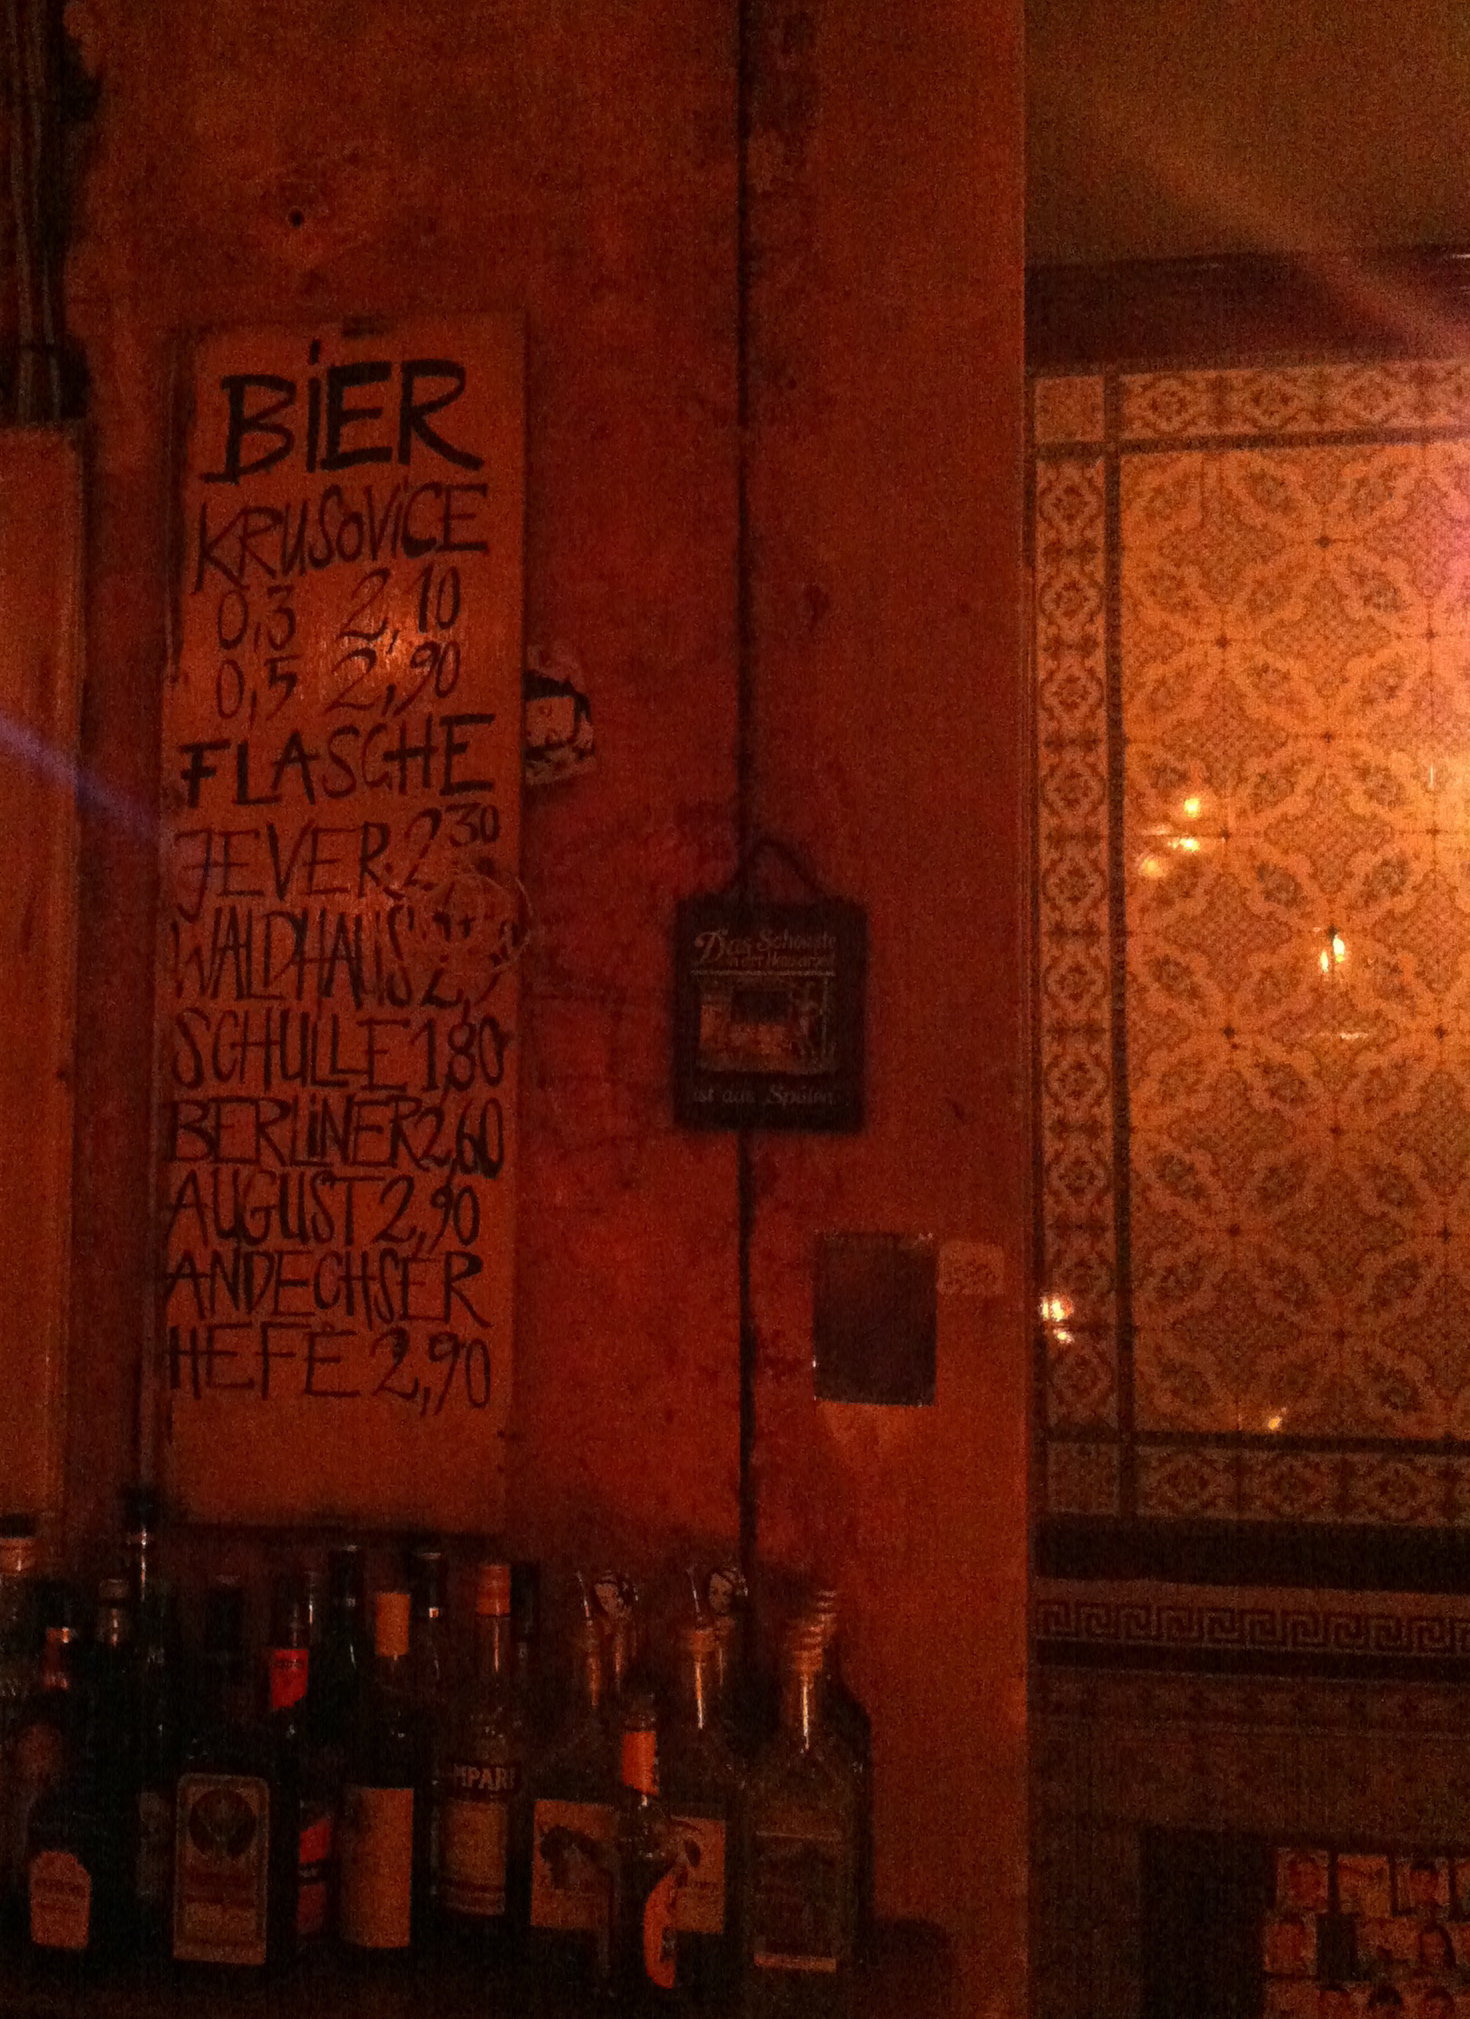 BiER
KRUSOViCE
0,3 2,10
0,5 2,90
FLASCHE
JEVER 2,30
WALDHAUS
SCHULLE 1,80
BERLiNER 2,60
AUGUST 2,90
ANDECHSER
HEFE 2,90
Das Schönste
ist das Spülen
MPARI